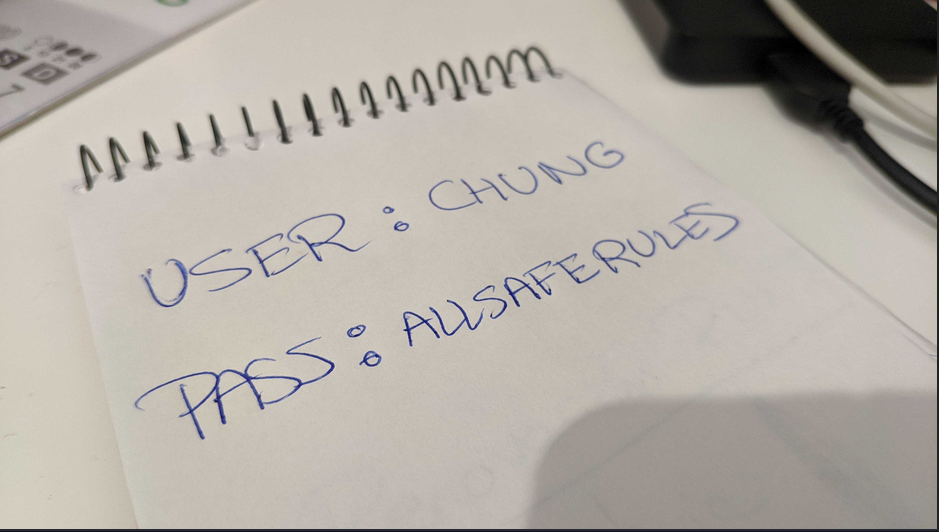 USER: CHUNG
PASS: ALLSAFERULES